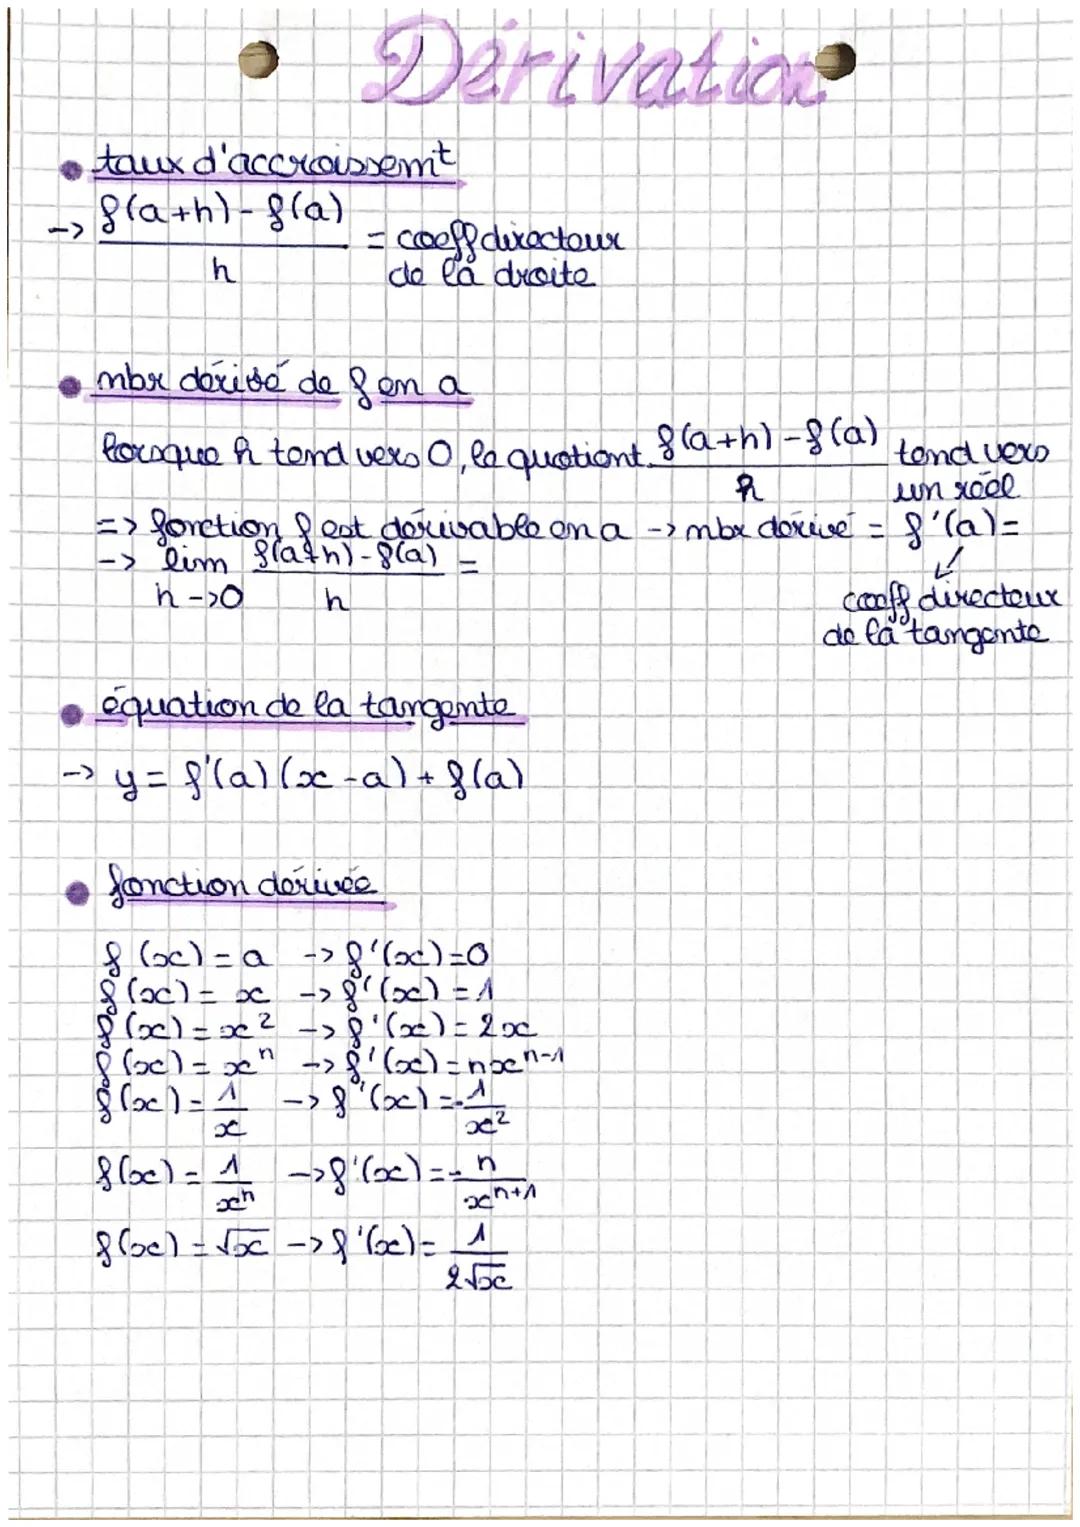 Dérivation
taux d'accroissemt
-> f(a+h) - f(a) / h = coeff directeur
de la droite
mbr dérivé de f en a
lorsque h tend vers 0, le quotient f(a+h) - f(a) / h tend vers
un réel
=> fonction f est dérivable en a -> mbr dérivé = f'(a) =
-> lim h->0 f(a+h) - f(a) / h =
coeff directeur
de la tangente
équation de la tangente
-> y = f'(a) (x - a) + f(a)
fonction dérivée
f(x) = a -> f'(x) = 0
f(x) = x -> f'(x) = 1
f(x) = x² -> f'(x) = 2x
f(x) = xⁿ -> f'(x) = nxⁿ⁻¹
f(x) = 1/x -> f'(x) = -1/x²
f(x) = 1/xⁿ -> f'(x) = -n/xⁿ⁺¹
f(x) = √x -> f'(x) = 1/2√x